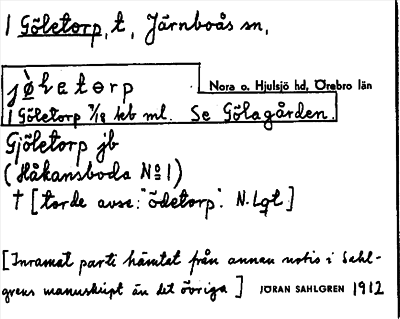 1 Göletorp, t, Järnboås sn,
jø̀letɵrp Nora o. Hjulsjö hd, Örebro län
1 Göletorp 7/18 kb ml. Se Gölagården.
Gjöletorp jb
(Håkansboda No 1)
† [torde avse: "ödetorp". N. Lgt]
[Inramat parti hämtat från annan notis i Sahl-
grens manuskript än det övriga] JÖRAN SAHLGREN 1912